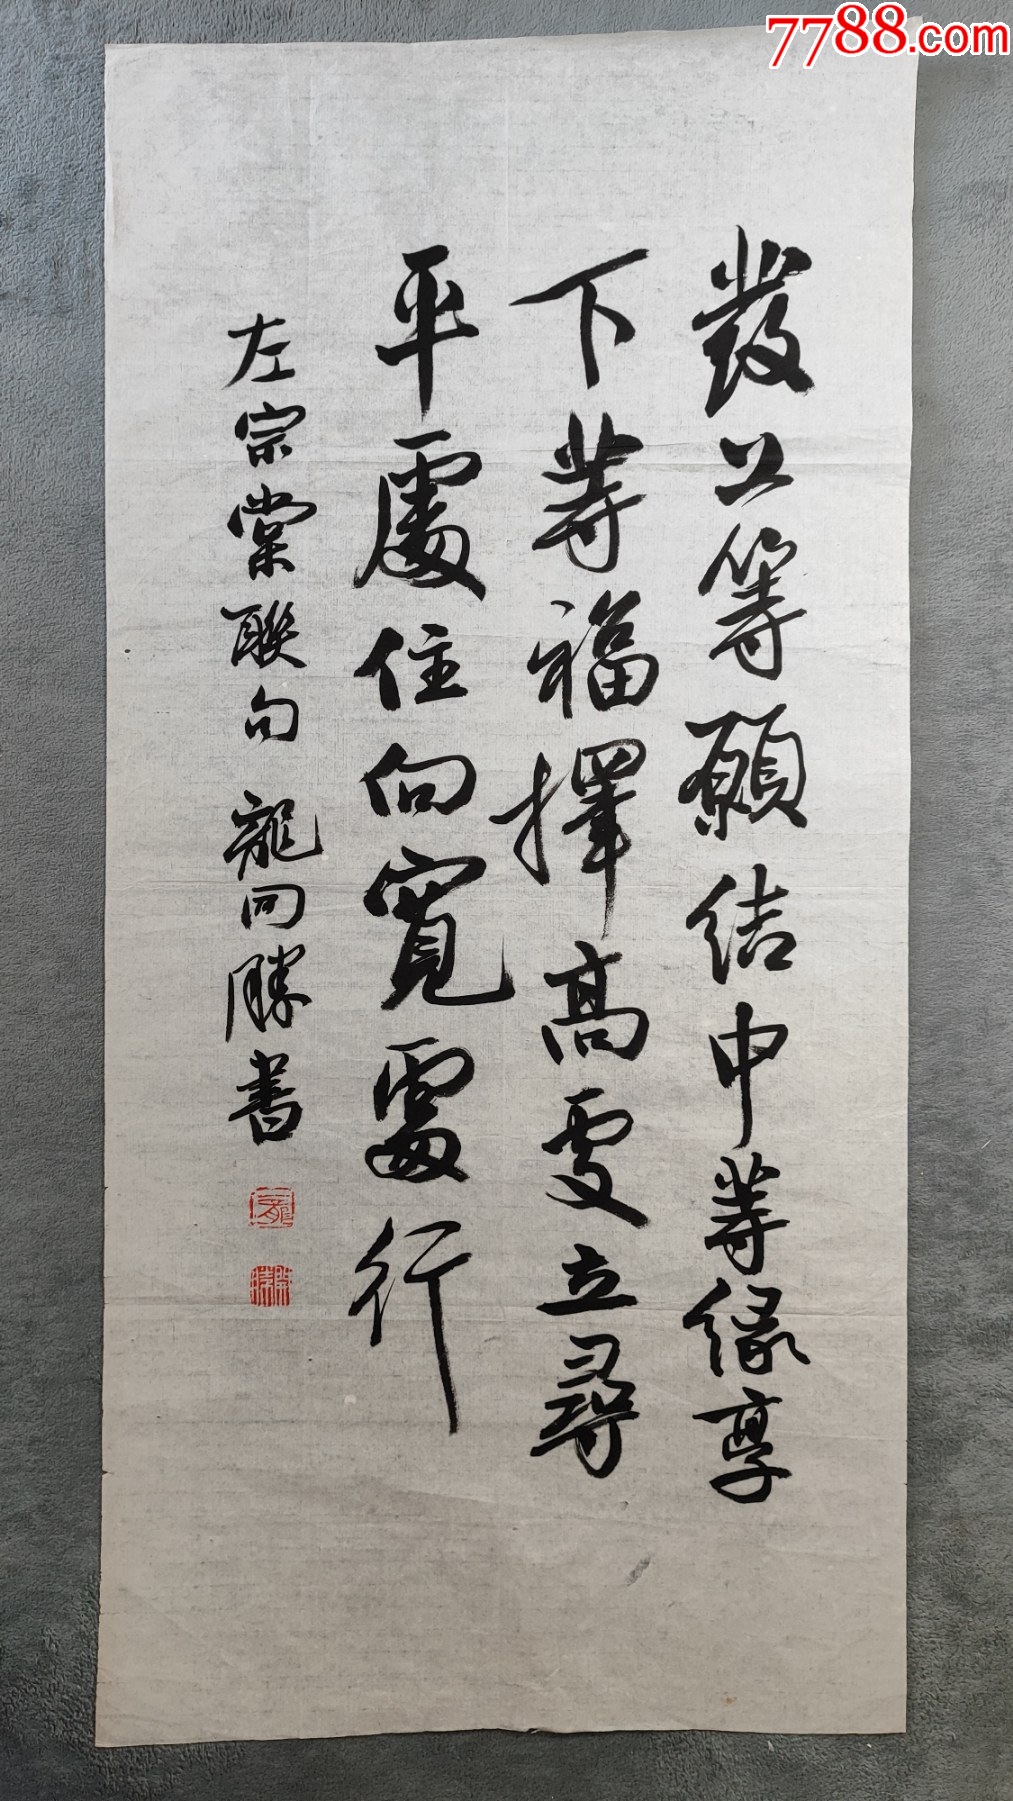 發上等願結中等緣享
下等福擇高處立尋
平處住向寬處行
左宗棠聯句龍回勝書
7788.com